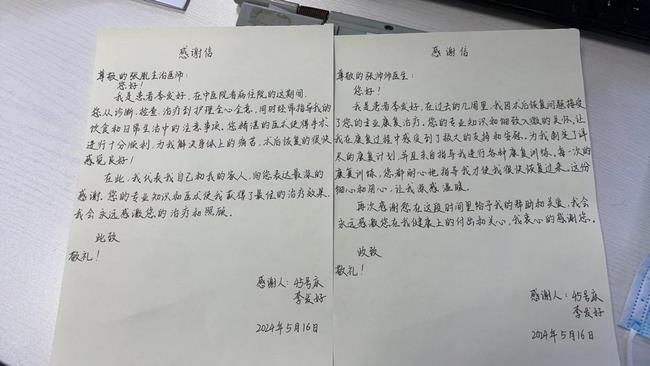 感谢信
尊敬的张胤主治医师：
您好！
我是患者李发好，在中医院看病住院的这期间，
您从诊断、检查、治疗到护理全心全意，同时经常指导我的
饮食和日常生活中的注意事项。您精湛的医术使得手术
进行十分顺利，为我解决身体上的病苦，术后恢复的很快
感觉良好！
在此，我代表我自己和我的家人，向您表达最深的
感谢，您的专业知识和医术使我获得了最佳的治疗效果。
我会永远感激您的治疗和照顾。
此致
敬礼！
感谢人：45号床
李发好
2024年5月16日
感谢信
尊敬的张帅帅医生：
您好！
我是患者李发好，在过去的几周里，我因术后恢复问题接受
了您的专业康复治疗。您的专业知识和细致入微的关怀，让
我在康复过程中感受到了极大的支持和安慰。为我制定了详
尽的康复计划，并且亲自指导我进行各种康复训练。每一次的
康复训练，您都耐心地指导我才使我很快恢复过来。这份
细心和用心，让我感到温暖。
再次感谢您在这段时间里给予我的帮助和关爱，我会
永远感激您在我健康上的付出和关心，我衷心的感谢您。
此致
敬礼！
感谢人：45号床
李发好
2024年5月16日